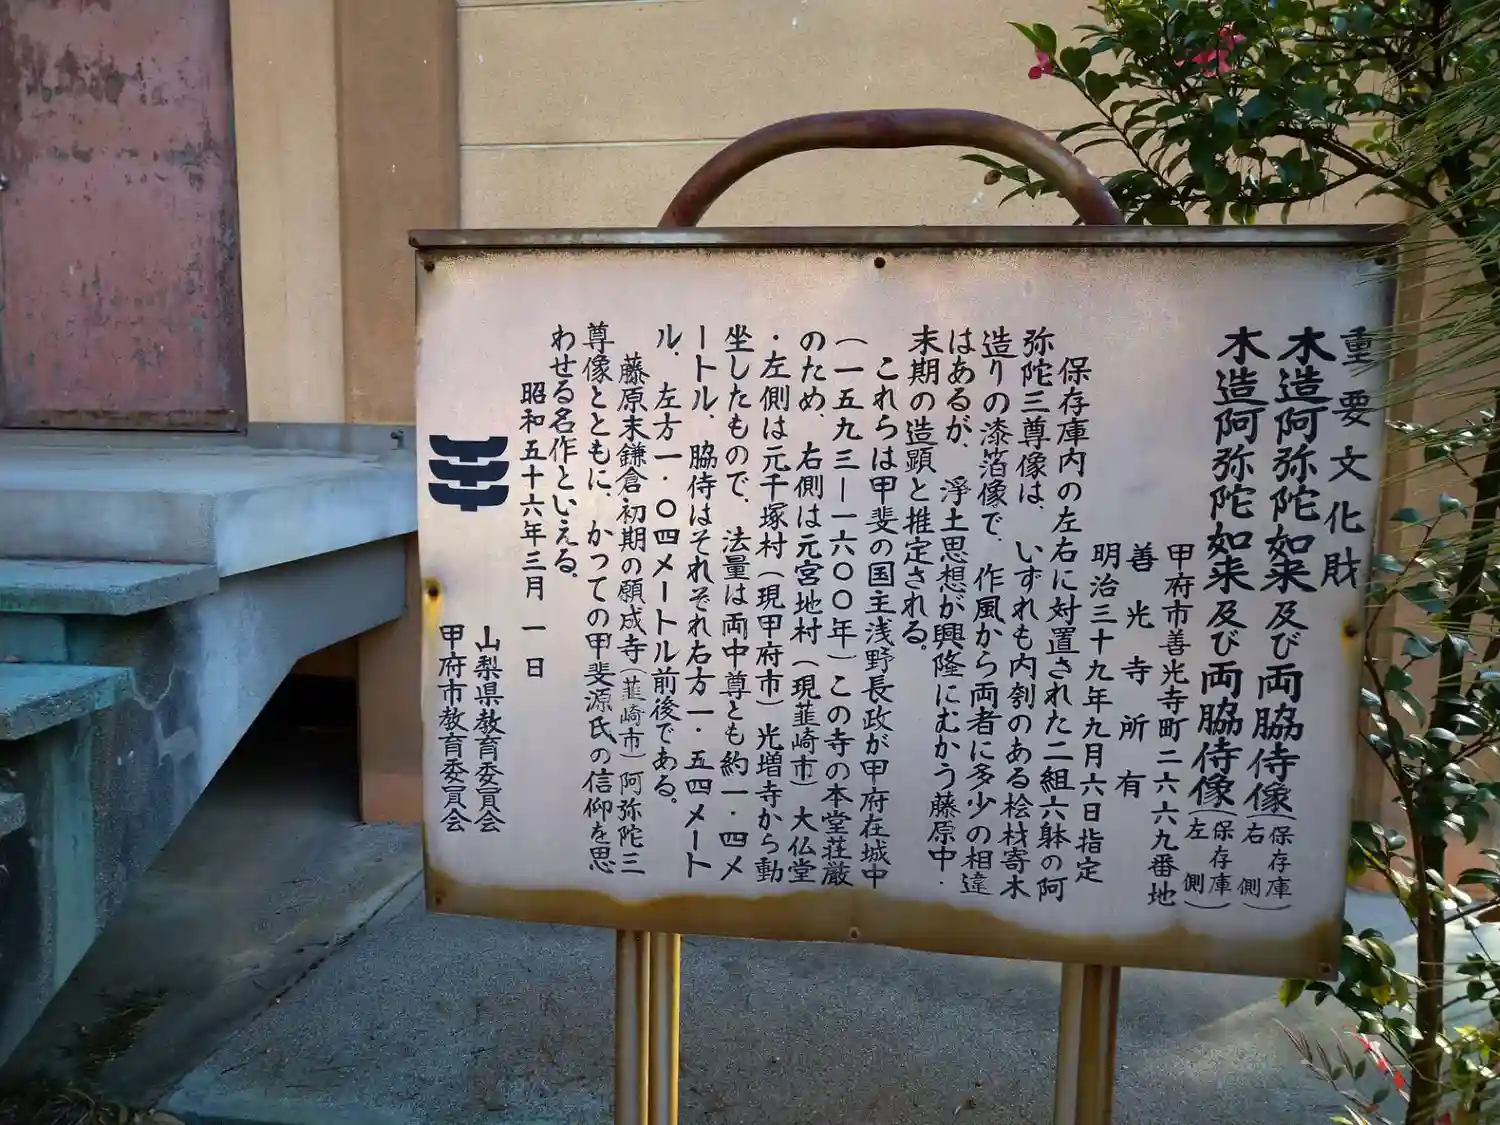 重要文化財
木造阿弥陀如来及び両脇侍像(保存庫右側)
木造阿弥陀如来及び両脇侍像(保存庫左側)
甲府市善光寺町二六六九番地
善光寺所有
明治三十九年九月六日指定
保存庫内の左右に対置された二組六躰の阿
弥陀三尊像は、いずれも内刳のある桧材寄木
造りの漆箔像で、作風から両者に多少の相違
はあるが、浄土思想が興隆にむかう藤原中・
末期の造顕と推定される。
これらは甲斐の国主浅野長政が甲府在城中
(一五九三―一六〇〇年)この寺の本堂荘厳
のため、右側は元宮地村(現韮崎市)大仏堂
・左側は元千塚村(現甲府市)光増寺から動
坐したもので、法量は両中尊とも約一・四メ
ートル、脇侍はそれぞれ右方一・五四メート
ル、左方一・〇四メートル前後である。
藤原末鎌倉初期の願成寺(韮崎市)阿弥陀三
尊像とともに、かつての甲斐源氏の信仰を思
わせる名作といえる。
昭和五十六年三月一日
山梨県教育委員会
甲府市教育委員会